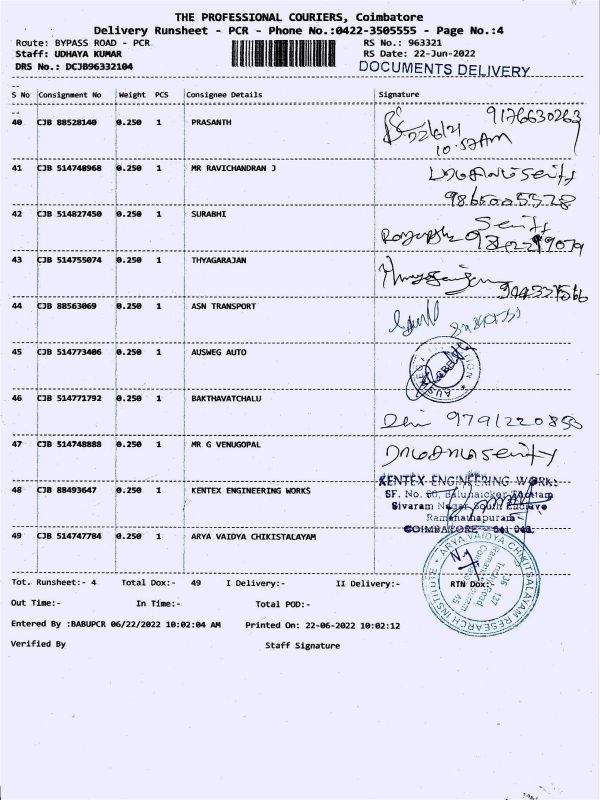 THE PROFESSIONAL COURIERS, Coimbatore
Delivery Runsheet - PCR - Phone No.:0422-3505555 - Page No.:4
Route: BYPASS ROAD - PCR RS No.: 963321
Staff: UDHAYA KUMAR RS Date: 22-Jun-2022
DRS No.: DCJB96332104 DOCUMENTS DELIVERY
S No Consignment No Weight PCS Consignee Details Signature
40 CJB 88528140 0.250 1 PRASANTH 9176630263
22/6/21
10.57AM
41 CJB 514748968 0.250 1 MR RAVICHANDRAN J
42 CJB 514827450 0.250 1 SURABHI
43 CJB 514755074 0.250 1 THYAGARAJAN
44 CJB 88563069 0.250 1 ASN TRANSPORT
45 CJB 514773406 0.250 1 AUSWEG AUTO
46 CJB 514771792 0.250 1 BAKTHAVATCHALU
9791220853
47 CJB 514748888 0.250 1 MR G VENUGOPAL
48 CJB 88493647 0.250 1 KENTEX ENGINEERING WORKS
KENTEX ENGINEERING WORKS
SF. No. 80, Balunaicker Thottam
Sivaram Nagar South Enclave
Ramanathapuram
COIMBATORE - 641 045.
49 CJB 514747784 0.250 1 ARYA VAIDYA CHIKISTALAYAM
ARYA VAIDYA CHIKITSALAYAM RESEARCH INSTITUTE
Tot. Runsheet:- 4 Total Dox:- 49 I Delivery:- II Delivery:- RTN Dox:
Out Time:- In Time:- Total POD:-
Entered By :BABUPCR 06/22/2022 10:02:04 AM Printed On: 22-06-2022 10:02:12
Verified By Staff Signature